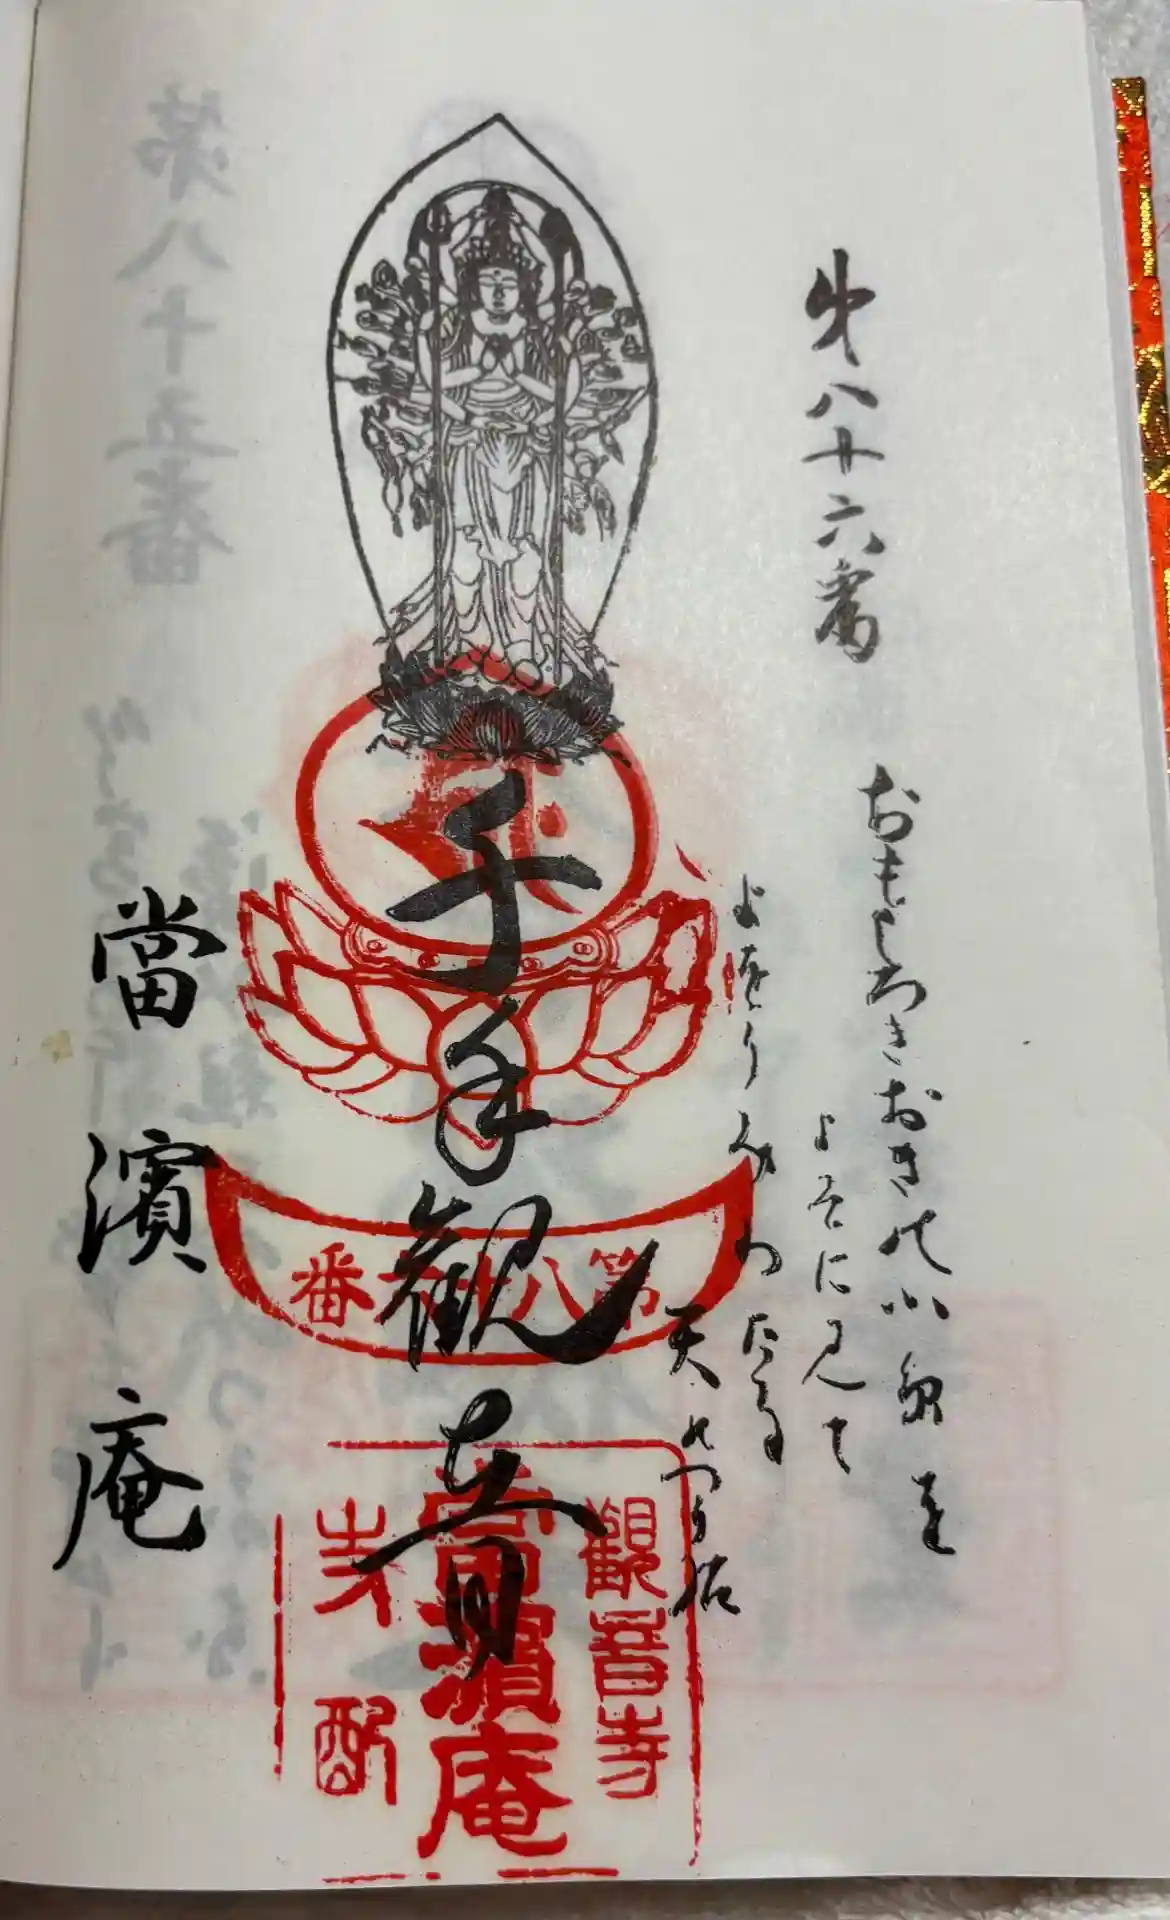 第八十六番
おもしろきおき乃小舟を
よそに見て
よをうみわたる
天のつり船
千手観音
當濱庵
第八十六番
観音寺
當濱庵
支配
第八十五番